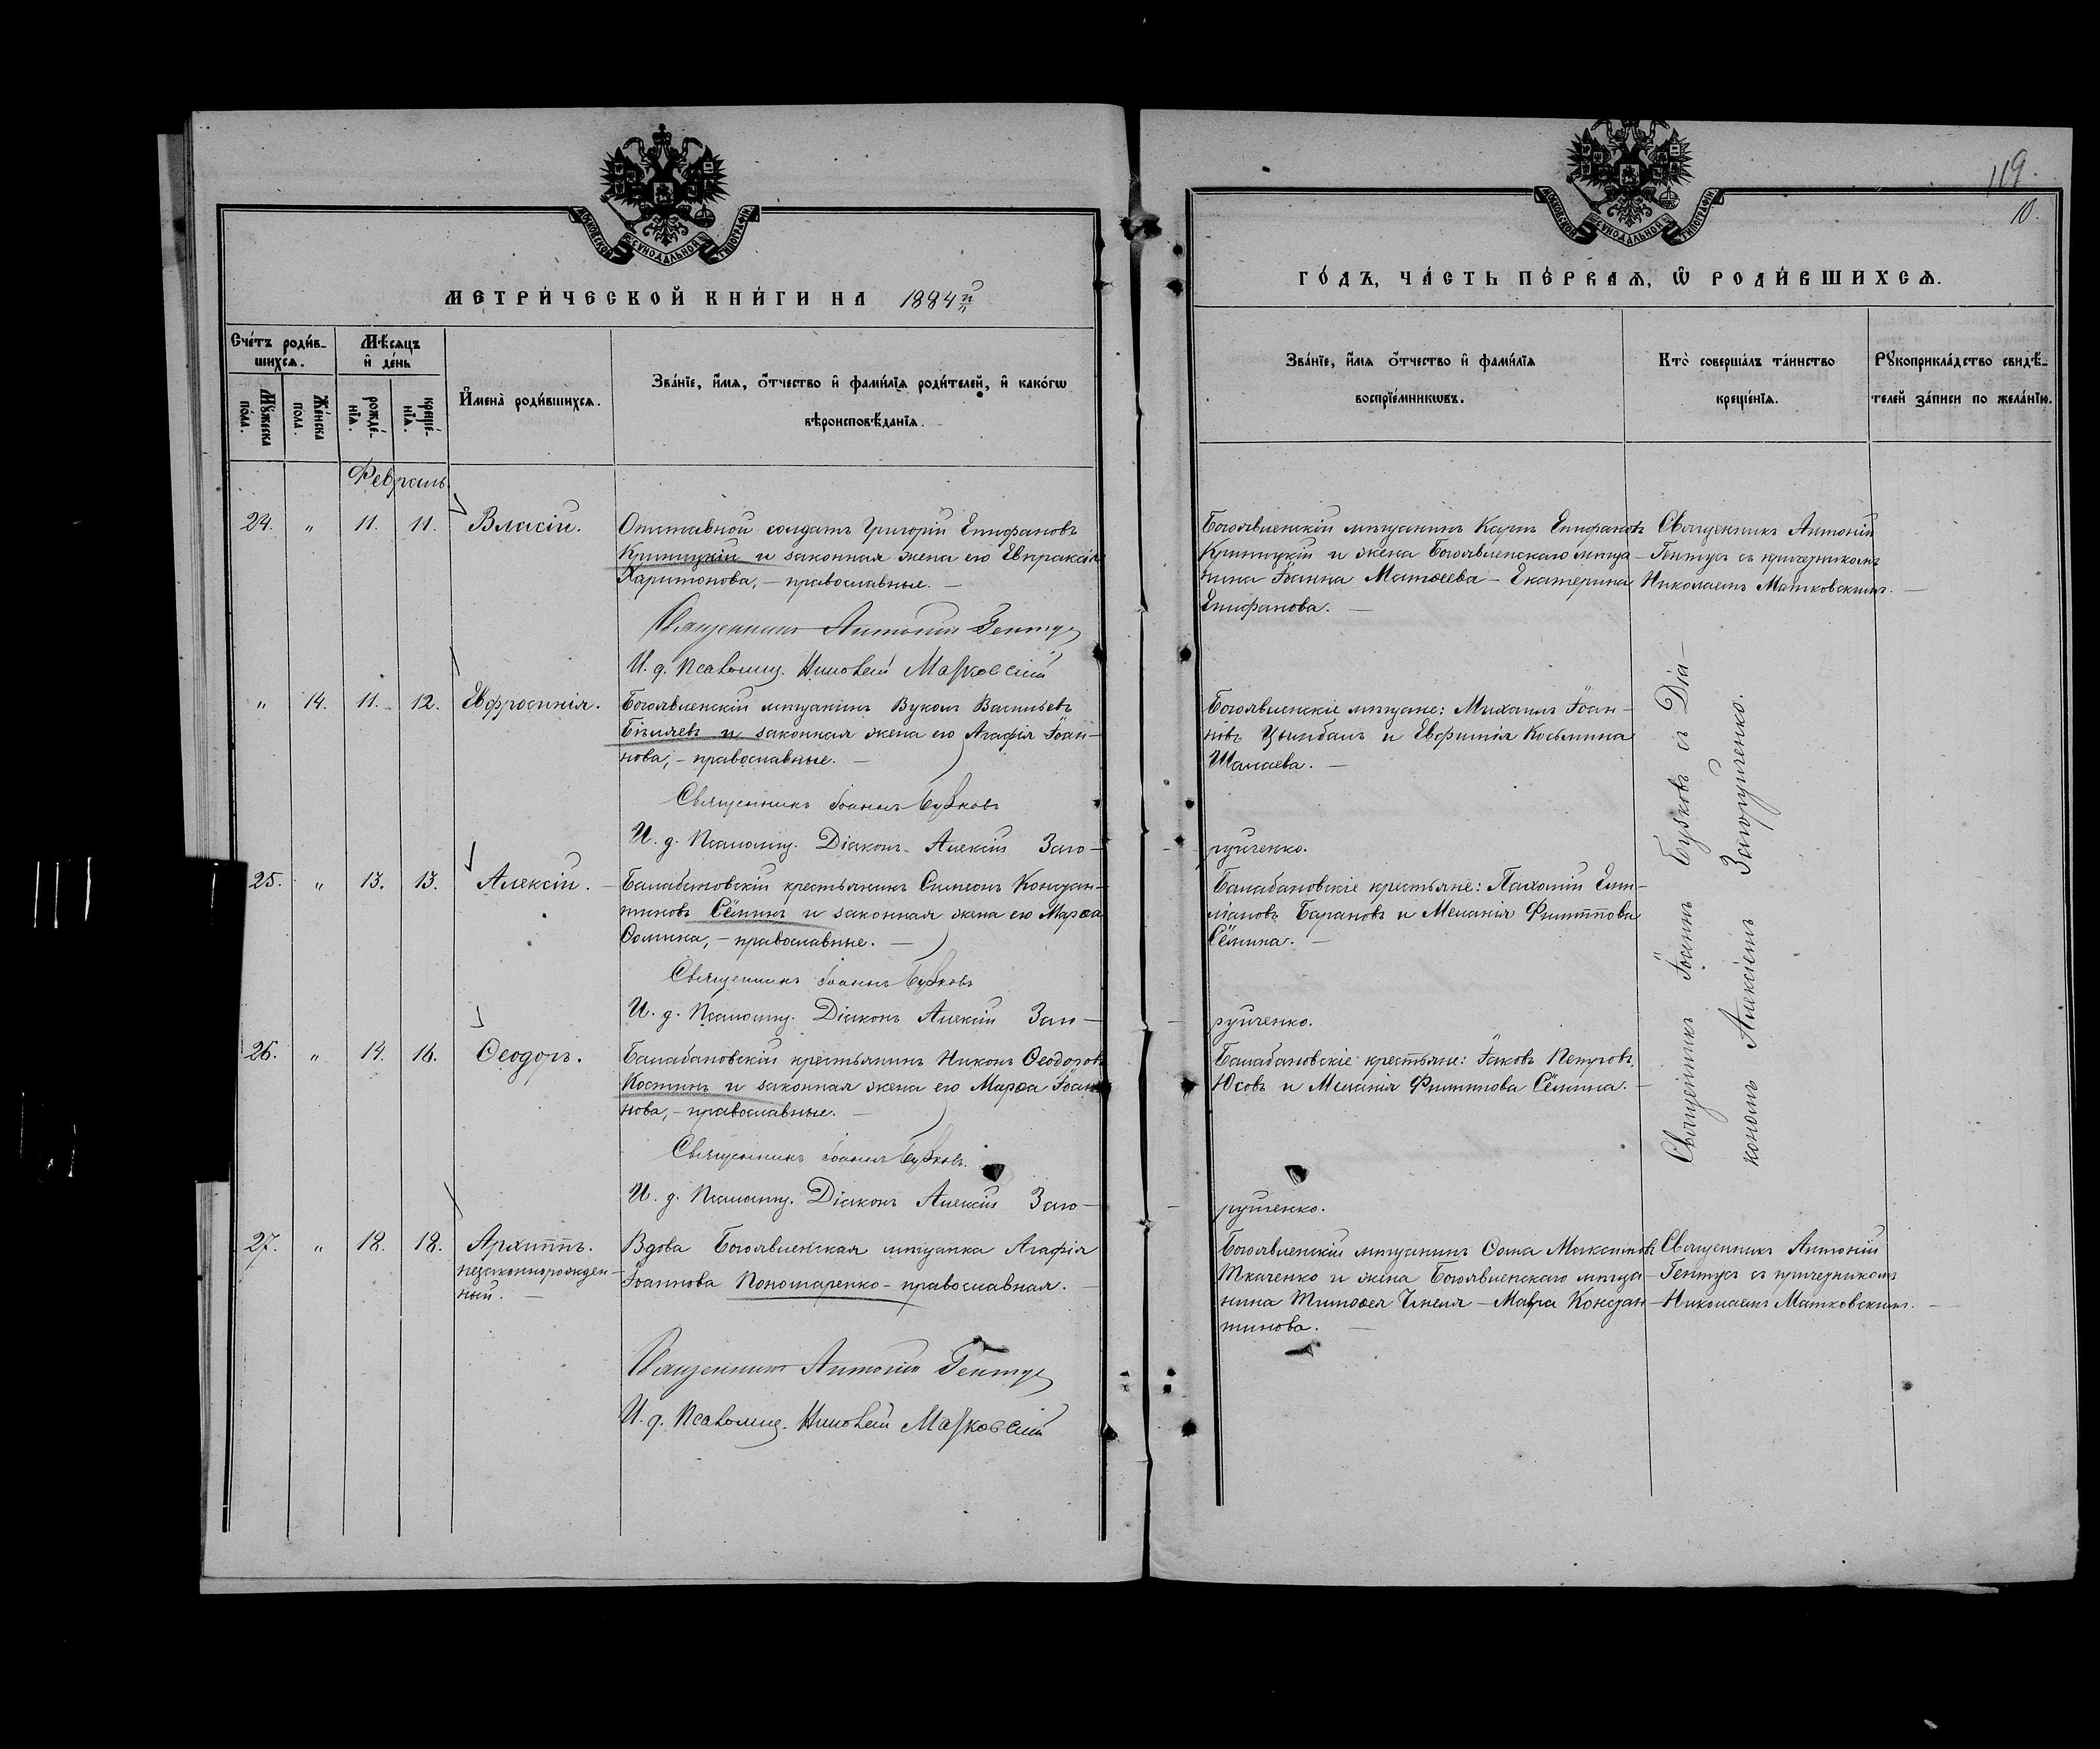 119.
10.
МОСКОВСКОЙ СѴНОДАЛЬНОЙ ТИПОГРАФІИ
МЕТРИ́ЧЕСКОЙ КНИ́ГИ НА 1884й
Сче́тъ роди́в-
шихся.
Мѣ́сяцъ
и҆ де́нь
Мꙋ́жеска
по́ла.
Же́нска
по́ла.
рожде́-
нїѧ.
креще́-
нїѧ.
И҆мена̀ роди́вшихсѧ.
Зва́нїе, и҆́мѧ, о҆́тчество и҆ фами́лїѧ роди́телей, и҆ како́гѡ
вѣроисповѣ́данїѧ.
Февраль.
24. " 11. 11. Власій.
Отставной солдатъ Григорій Епифановъ
Криницкій и законная жена его Евпраксія
Харитонова, – православные. –
Священникъ Антоній Гентуз
И. д. Псаломщ. Николай Матковскій
" 14. 11. 12. Евфросинія.
Богоявленскій мѣщанинъ Вуколъ Васильевъ
Бѣляевъ и законная жена его Агафія Іоан-
нова, – православные. –
Священникъ Іоаннъ Бужковъ
И. д. Псаломщ. Діаконъ Алексій Заго-
25. " 13. 13. Алексій. –
Балабановскій крестьянинъ Симеонъ Констан-
тиновъ Сёминъ и законная жена его Марѳа
Ѳомина, – православные. –
Священникъ Іоаннъ Бужковъ
И. д. Псаломщ. Діаконъ Алексій Заго-
26. " 14. 16. Ѳеодоръ.
Балабановскій крестьянинъ Никонъ Ѳеодоровъ
Костинъ и законная жена его Марѳа Іоан-
нова, – православные. –
Священникъ Іоаннъ Бужковъ.
И. д. Псаломщ. Діаконъ Алексій Заго-
27. " 18. 18. Архиппъ.
незаконнорожден-
ный. –
Вдова Богоявленская мѣщанка Агафія
Іоаннова Пономаренко – православная. –
Священникъ Антоній Гентуз
И. д. Псаломщ. Николай Матковскій
МОСКОВСКОЙ СѴНОДАЛЬНОЙ ТИПОГРАФІИ
ГО́ДЪ, ЧА́СТЬ ПЕ́РВАѦ, Ѡ РОДИ́ВШИХСѦ.
Зва́нїе, и҆́мѧ о҆́тчество и҆ фами́лїѧ
воспрїе́мникѡвъ.
Кто̀ соверша́лъ та́инство
креще́нїѧ.
Рꙋкоприкла́дство свидѣ́-
телей за́писи по жела́нїю.
Богоявленскій мѣщанинъ Карпъ Епифановъ
Криницкій и жена Богоявленскаго мѣща-
нина Іоанна Матѳеева – Екатерина
Епифанова. –
Священникъ Антоній
Гентуз съ причетникомъ
Николаемъ Матковскимъ. –
Богоявленскіе мѣщане: Михаилъ Іоан-
новъ Цымбалъ и Евфимія Косьмина
Шалаева. –
руйченко.
Балабановскіе крестьяне: Пахомій Еми-
ліановъ Барановъ и Меланія Филиппова
Сёмина. –
руйченко.
Балабановскіе крестьяне: Іаковъ Петровъ
Юсовъ и Меланія Филиппова Сёмина. –
руйченко.
Священникъ Іоаннъ Бужковъ съ Діа-
кономъ Алексіемъ Загоруйченко.
Богоявленскій мѣщанинъ Ѳома Максимовъ
Ткаченко и жена Богоявленскаго мѣща-
нина Тимоѳея – Мавра Констан-
тинова. –
Священникъ Антоній
Гентуз съ причетникомъ
Николаемъ Матковскимъ. –